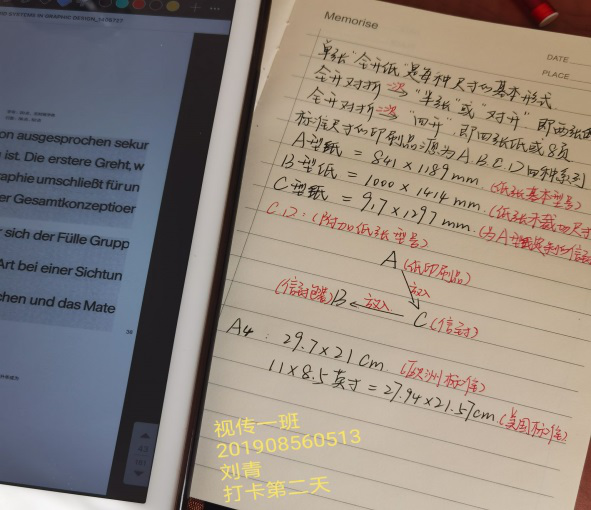 on ausgesprochen sekur
n ist. Die erstere Greht, w
raphie umschließt für un
er Gesamtkonzeptioer
r sich der Fülle Grupp
Art bei einer Sichtun
chen und das Mate
39
43
Memorise
DATE
PLACE
单张"全开纸"是每种尺寸的基本形式
全开对折一次 "半张"或"对开" 即两张纸
全开对折二次 "四开" 即四张纸或8页
标准尺寸的印刷品源为A.B.C.D四种系列
A型纸 = 841×1189mm (纸张基本型号)
B型纸 = 1000×1414mm (纸张未裁切尺寸
C型纸 = 9.7×1297mm
C.D:(附加纸张型号)
A (纸印刷品)
放入
(信封包装)B 放入 C (信封)
A4: 29.7×21cm (欧洲标准)
11×8.5英寸=27.94×21.57cm (美国标准)
视传一班
201908560513
刘青
打卡第二天